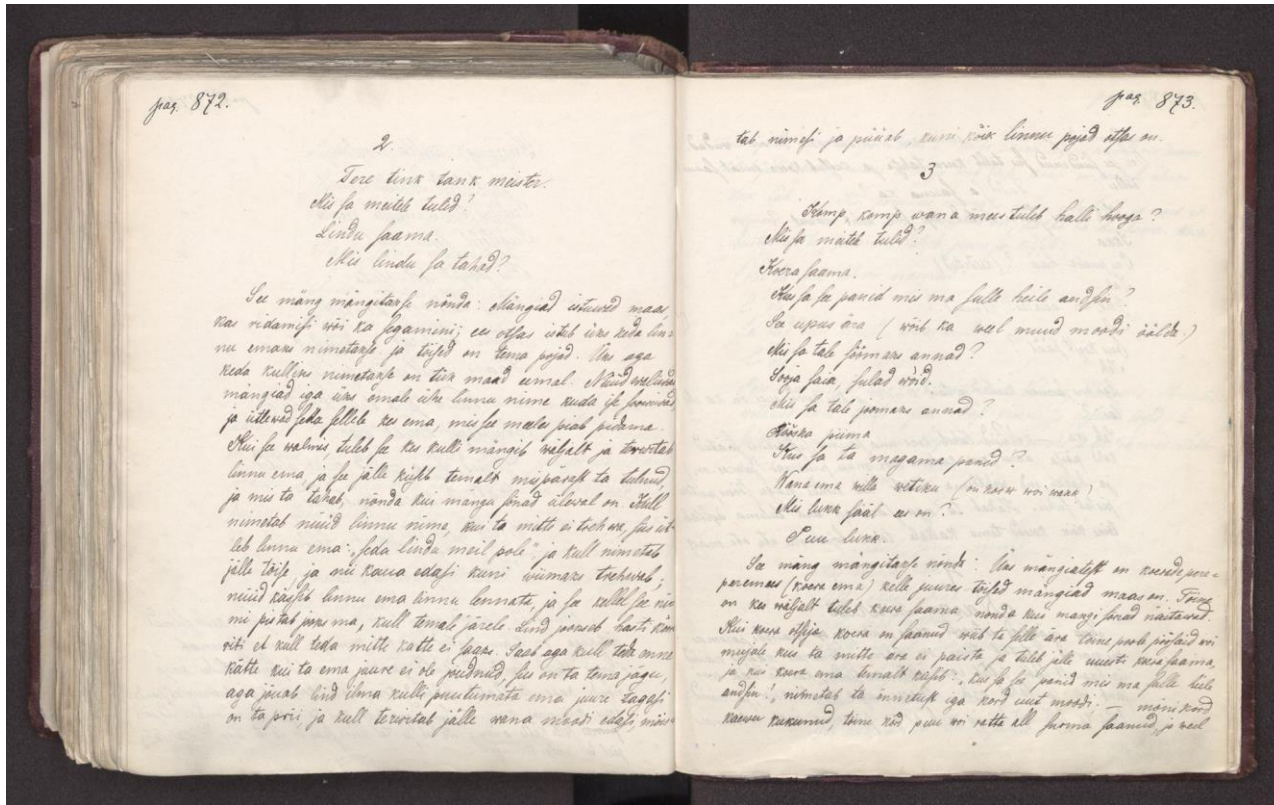 pag. 872.
2.
Tere tink tank meister.
Mis sa meitele tuled?
Lindu saama.
Mis lindu sa tahad?
See mäng mängitakse nõnda: Mängiad istuwad maas,
kas ridamisi wõi ka segamini; ees otsas istub üks keda lin=
nu emaks nimetakse ja tõised on tema pojad. Üks aga
keda kulliks nimetakse on tük maad eemal. Nüüd walivad
mängiad iga üks omale ühe linnu nime kuda ise soowiwad
ja ütlewad seda sellele kes ema, mis see meeles piab pidama.
Kui see walmis, tuleb se kes kulli mängib wäljalt ja terwitab
linnu ema ja see jälle küsib temalt mispärast ta tulnud,
ja mis ta tahab, nõnda kui mängu sõnad ülewal on. Kull
nimetab nüüd linnu nime, kui ta mitte ei trehwa, siis üt=
leb linnu ema: "seda lindu meil pole" ja kull nimetab
jälle tõise, ja nii kaua edasi kuni wiimaks trehwab;
nüüd käsib linnu ema linnu lennata, ja se kellel see ni=
mi pistab jooksma, kull temale järele. Lind jookseb hasti
et kull teda mitte kätte ei saaks. Saab aga kull teda enne
kätte kui ta ema juure ei ole jõudnud, siis on ta tema jägu,
aga jõuab lind ilma kulli puutumata ema juure tagasi
on ta prii ja kull terwitab jälle wana moodi edasi
pag. 873.
tab, nimesi ja püüab, kuni kõik linnu pojad otsas on.
3
Komp, komp wana mees tuleb halli hooga?
Mis sa meitele tuled?
Koera saama.
Kus sa see panid mis ma sulle heile andsin?
See upus ära (wõib ka weel muud moodi üölda.)
Mis sa tale söömaks annad?
Sooja saia, sulad wõid.
Mis sa tale joomaks annad?
Rõõska piima
Kus sa ta magama paned?
Wana ema willa wakka
Mis lukk sääl ees on?
Puu lukk.
See mäng mängitakse nõnda: Üks mängialest on koerade pere=
peremees (koera ema) kelle juures tõised mängiad maas on. Tõine
on kes wäljalt tuleb koera saama nõnda kui mängi sõnad näitawad.
Kui koera otsija koera on saanud wiib ta selle ära tõine poole põesaid wõi
mujale kus ta mitte ära ei paista ja tuleb jälle uuesti koera saama,
ja kui koera ema temalt küsib: "kus sa see panid mis ma sulle heile
andsin", nimetab ta õnnetust iga kord uut moodi: — mõni kord
kaewu kukunud, tõine kord puu wõi ratta all surma saanud, ja weel